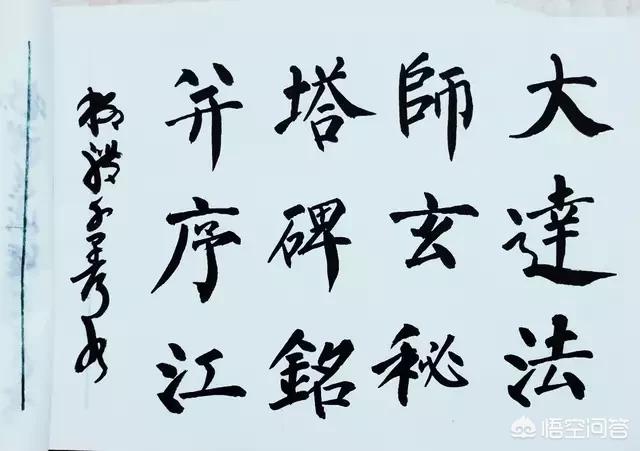 大達法
師玄秘
塔碑銘
并序江
悟空问答